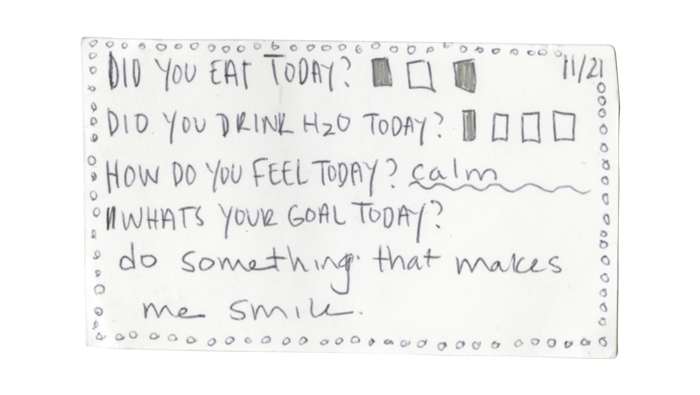 DID YOU EAT TODAY? 11/21
DID YOU DRINK H2O TODAY?
HOW DO YOU FEEL TODAY? calm
WHATS YOUR GOAL TODAY?
do something that makes
me smile.